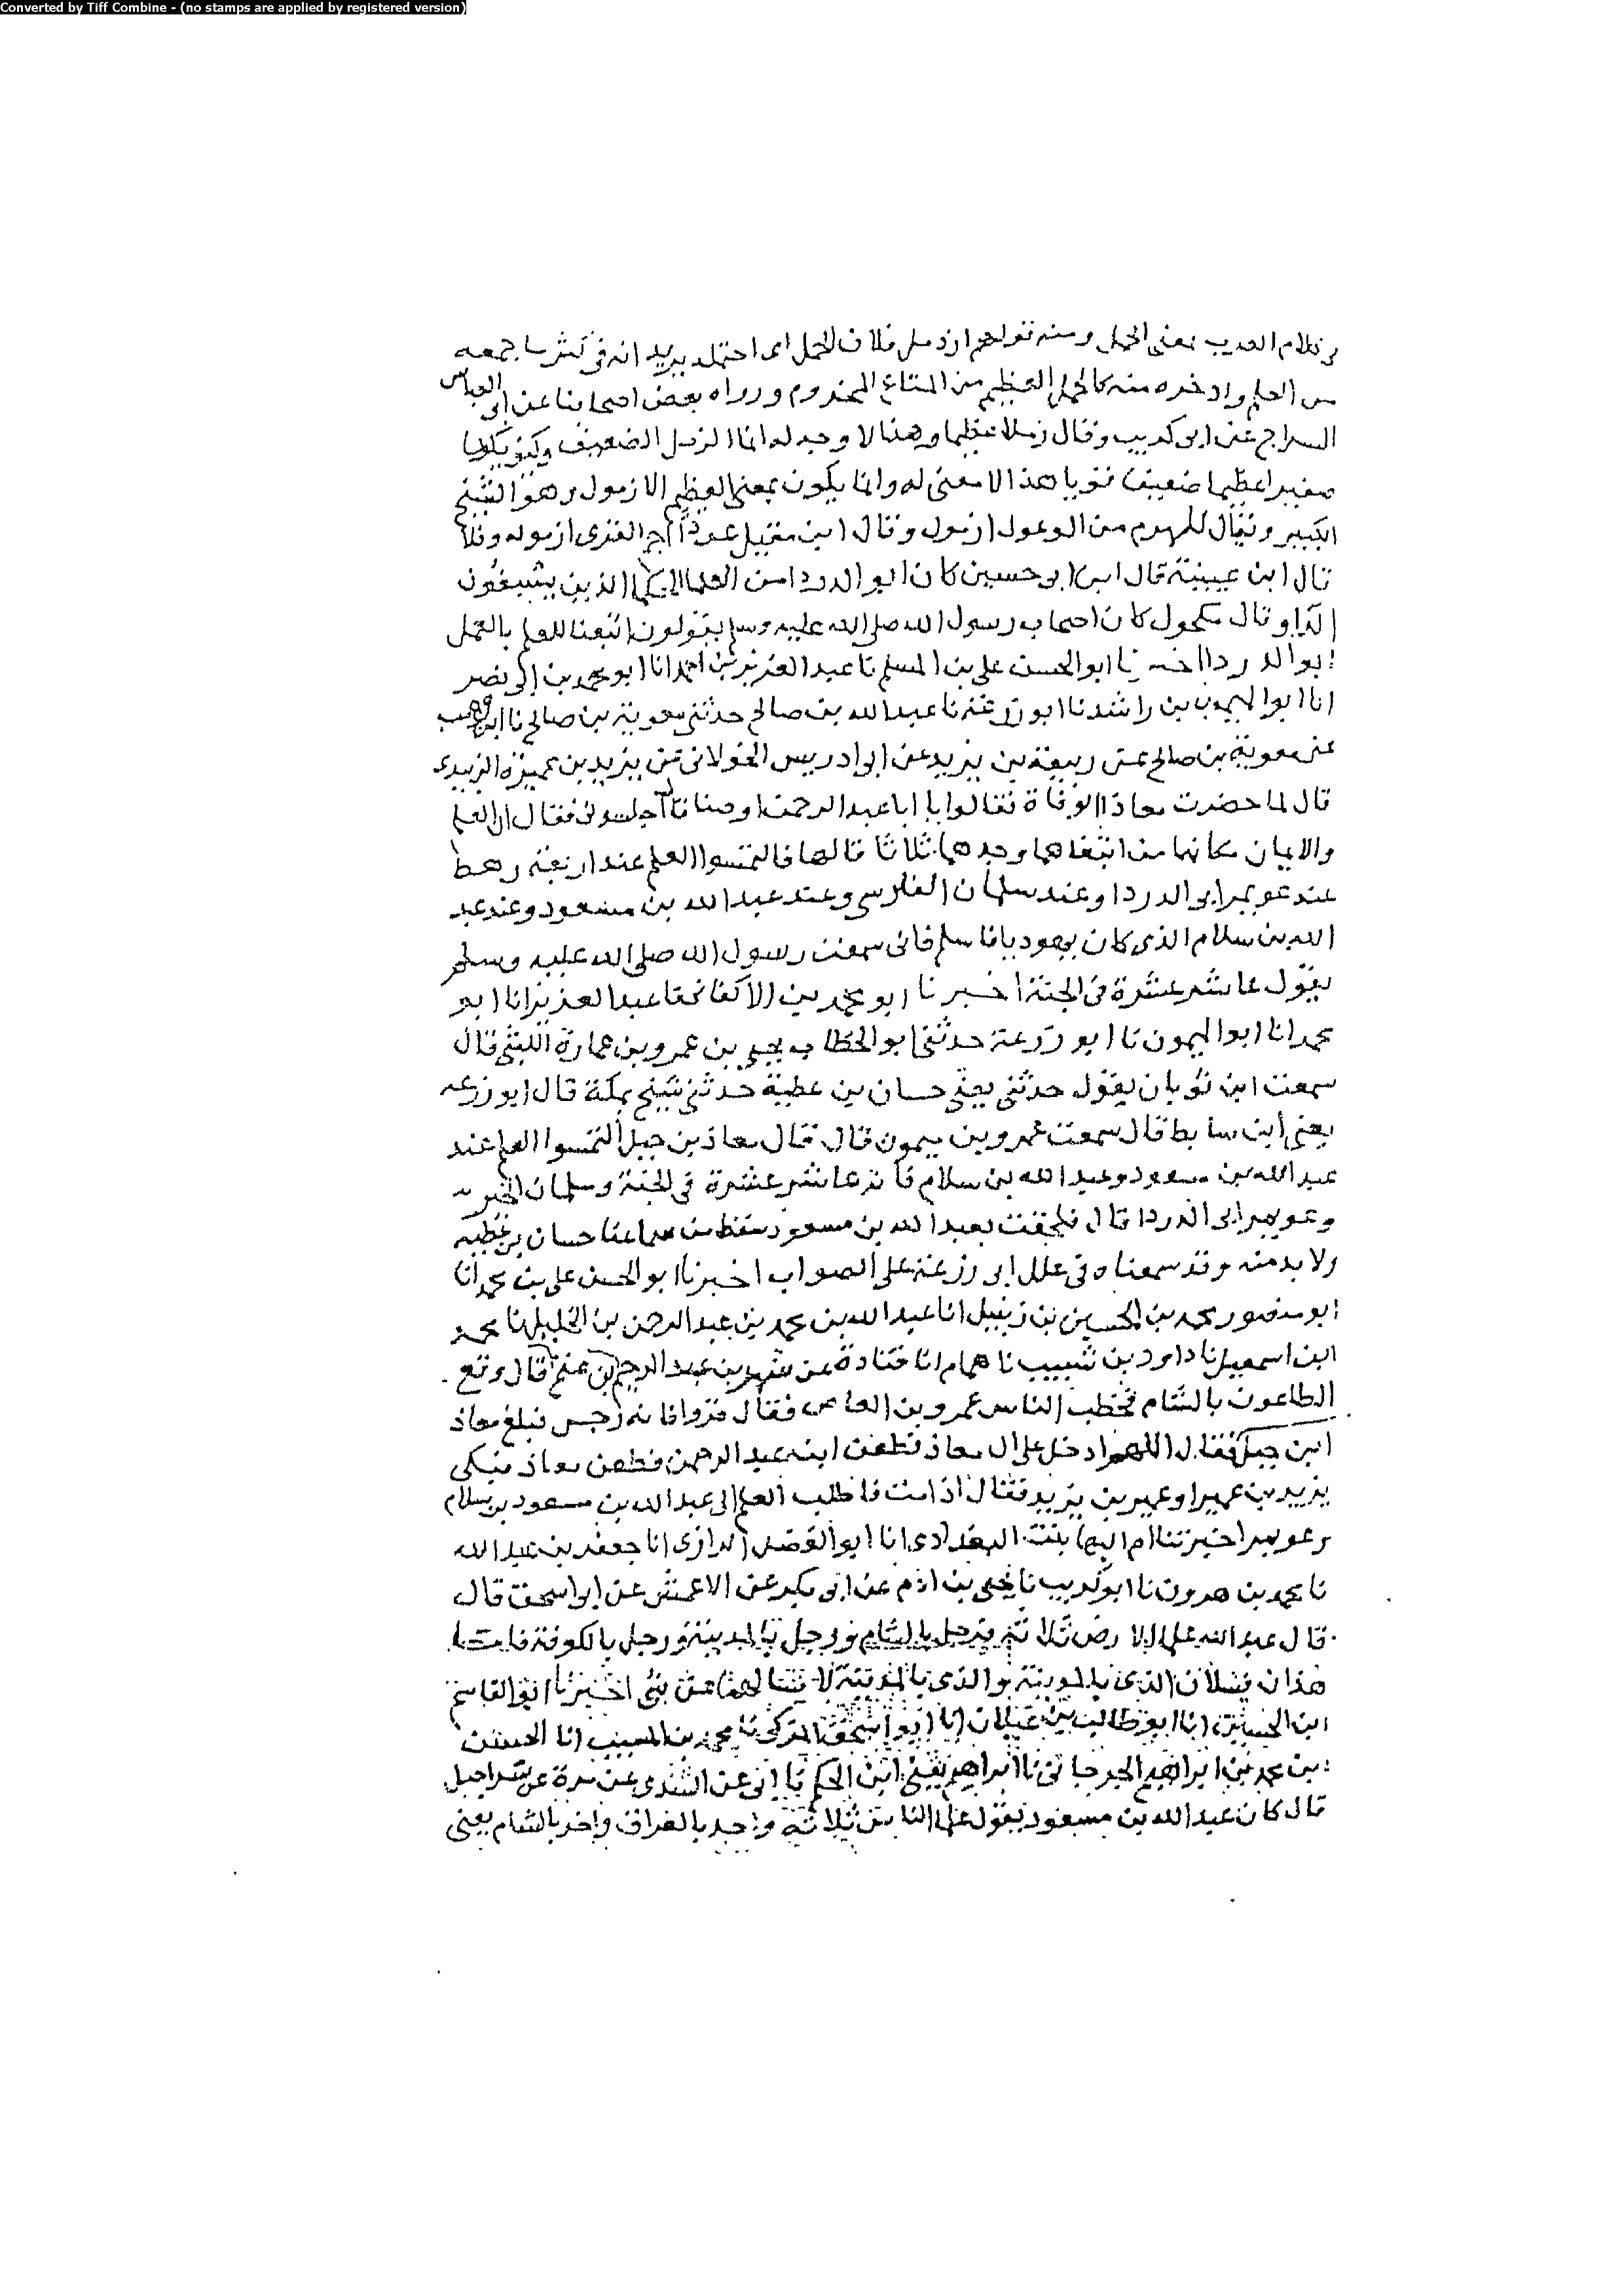 Converted by Tiff Combine - (no stamps are applied by registered version)
كلام العرب بمعنى الحمل ومنه قولهم ازدمل فلان الحمل اى احتمله يريد انه فى كثر ما جمعه
من العلم وادخره منه كالحمل العظيم من المتاع المحزوم ورواه بعض اصحابنا عن ابى العباس
السراج عن ابى كريب وقال زملا عظيما وهذا لا وجه له انما الزمل الضعيف وكيف يكون
صغيرا عظيما ضعيفا قويا هذا لا معنى له وانما يكون بمعنى العظيم الازمول وهو الشيخ
الكبير ويقال للمهرم من الوعول ازمول وقال ابن مقبل عودا احم القرى ازموله وقلا
قال ابن عيينة قال ابن ابى حسين كان ابو الدردا من العلما الحكما الذين يشفون
الدا وقال مكحول كان اصحاب رسول الله صلى الله عليه وسلم يقولون اتبعنا للعلم بالعمل
ابو الدردا اخبرنا ابو الحسن على بن المسلم نا عبد العزيز بن احمد انا ابو محمد بن ابى نصر
انا ابو الميمون بن راشد نا ابو زرعة نا عبد الله بن صالح حدثنى معوية بن صالح نا ابن وهب
عن معوية بن صالح عن ربيعة بن يزيد عن ابى ادريس الخولانى عن يزيد بن عميرة الزبيدى
قال لما حضرت معاذا الوفاة فقالوا يا ابا عبد الرحمن اوصنا قال اجلسونى فقال ان العلم
والايمان مكانهما من ابتغاهما وجدهما ثلاثا قالها فالتمسوا العلم عند اربعة رهط
عند عويمر ابى الدردا وعند سلمان الفارسى وعند عبد الله بن مسعود وعند عبد
الله بن سلام الذى كان يهوديا فاسلم فانى سمعت رسول الله صلى الله عليه وسلم
يقول عاشر عشرة فى الجنة اخبرنا ابو محمد بن الاكفانى نا عبد العزيز انا ابو
محمد انا ابو الميمون نا ابو زرعة حدثنى ابو الخطاب يحيى بن عمرو بن عمارة الليثى قال
سمعت ابن ثوبان يقول حدثنى يعنى حسان بن عطية حدثنى شيخ بمكة قال ابو زرعه
يعنى ابن سابط قال سمعت عمرو بن ميمون قال قال معاذ بن جبل التمسوا العلم عند
عبد الله بن مسعود وعبد الله بن سلام فانه عاشر عشرة فى الجنة وسلمان الخير
وعويمر ابى الدردا قال فلحقت بعبد الله بن مسعود سقط من سماعنا حسان بن عطيه
ولا بد منه وقد سمعناه فى علل ابى زرعة على الصواب اخبرنا ابو الحسن على بن محمد انا
ابو منصور محمد بن الحسين بن زنبيل انا عبد الله بن محمد بن عبد الرحمن بن الخليل نا محمد
ابن اسمعيل نا داود بن شبيب نا همام انا قتادة عن شهر بن عبد الرحمن بن غنم قال وقع
الطاعون بالشام فخطب الناس عمرو بن العاص فقال فروا فانه رجس فبلغ معاذ
ابن جبل فقال اللهم ادخل على ال معاذ فطعن ابنه عبد الرحمن فطعن معاذ فبكى
يزيد بن عمير او عمير بن يزيد فقال اذا مت فاطلب العلم الى عبد الله بن مسعود بن سلام
وعويمر اخبرتنا ام البها بنت البغدادى انا ابو الفضل الرازى انا جعفر بن عبد الله
نا محمد بن هرون نا ابو كريب نا يحيى بن ادم عن ابى بكر عن الاعمش عن ابى اسحق قال
قال عبد الله علما الارض ثلاثة فرجل بالشام ورجل بالمدينة ورجل بالكوفة فاما
هذان فيسلان الذى بالمدينة والذى بالمدينة لا يسالهما عن شى اخبرنا ابو القاسم
ابن الحصين انا ابو طالب بن غيلان انا ابو اسحق المزكى نا محمد بن المسيب انا الحسين
بن محمد بن ابراهيم الجرجانى نا ابراهيم يعنى ابن الحكم نا ابى عن السدى عن مرة عن شراحيل
قال كان عبد الله بن مسعود يقول علما الناس ثلاثة واحد بالعراق واخر بالشام يعنى